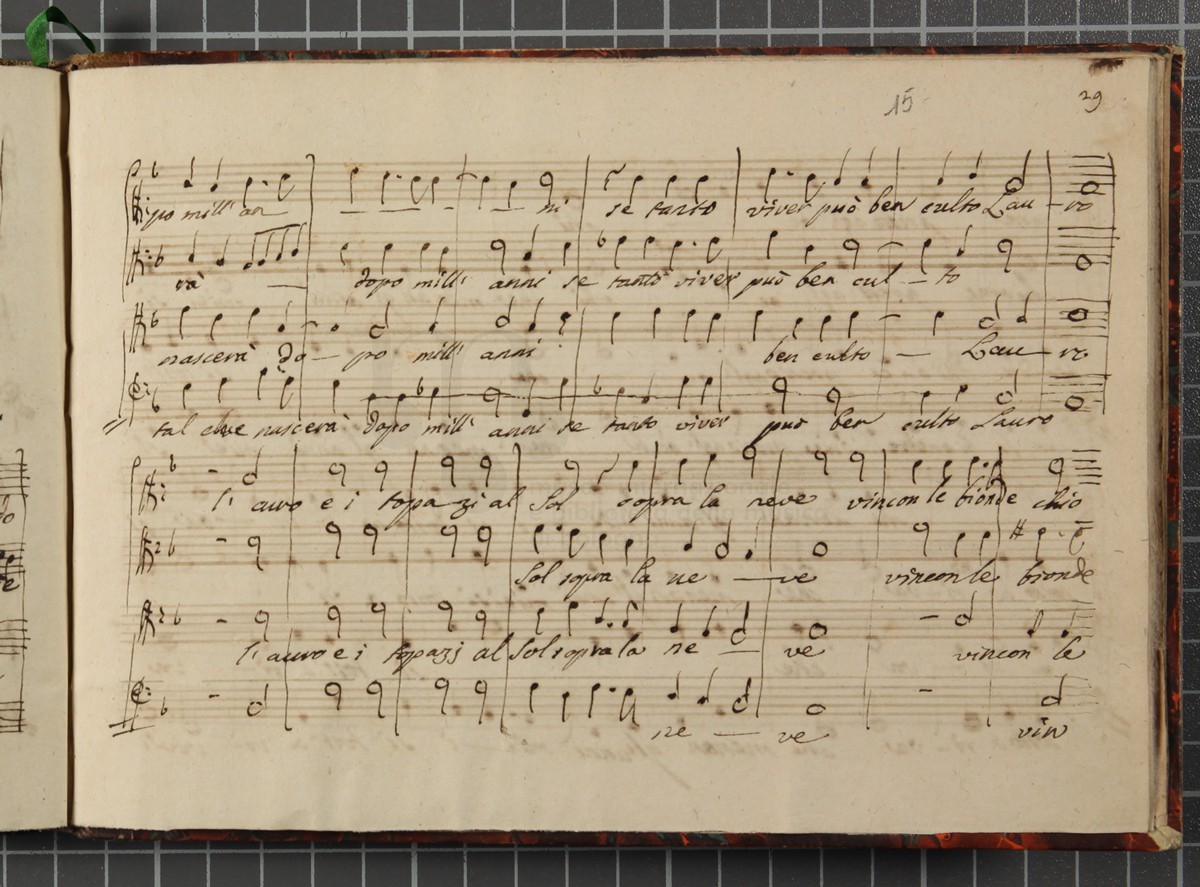 15
29
po mill' an — — — — ni se tanto viver può ben culto Lau — ro
rà — dopo mill' anni se tanto viver può ben cul — to
nascerà do — po mill' anni ben culto — Lau — ro
tal che nascerà dopo mill' anni se tanto viver può ben culto Lauro
l' auro e i topazi al Sol sopra la neve vincon le bionde chio
Sol sopra la ne — ve vincon le bionde
l' auro e i topazj al Sol sopra la ne — ve vincon le
ne — ve vin